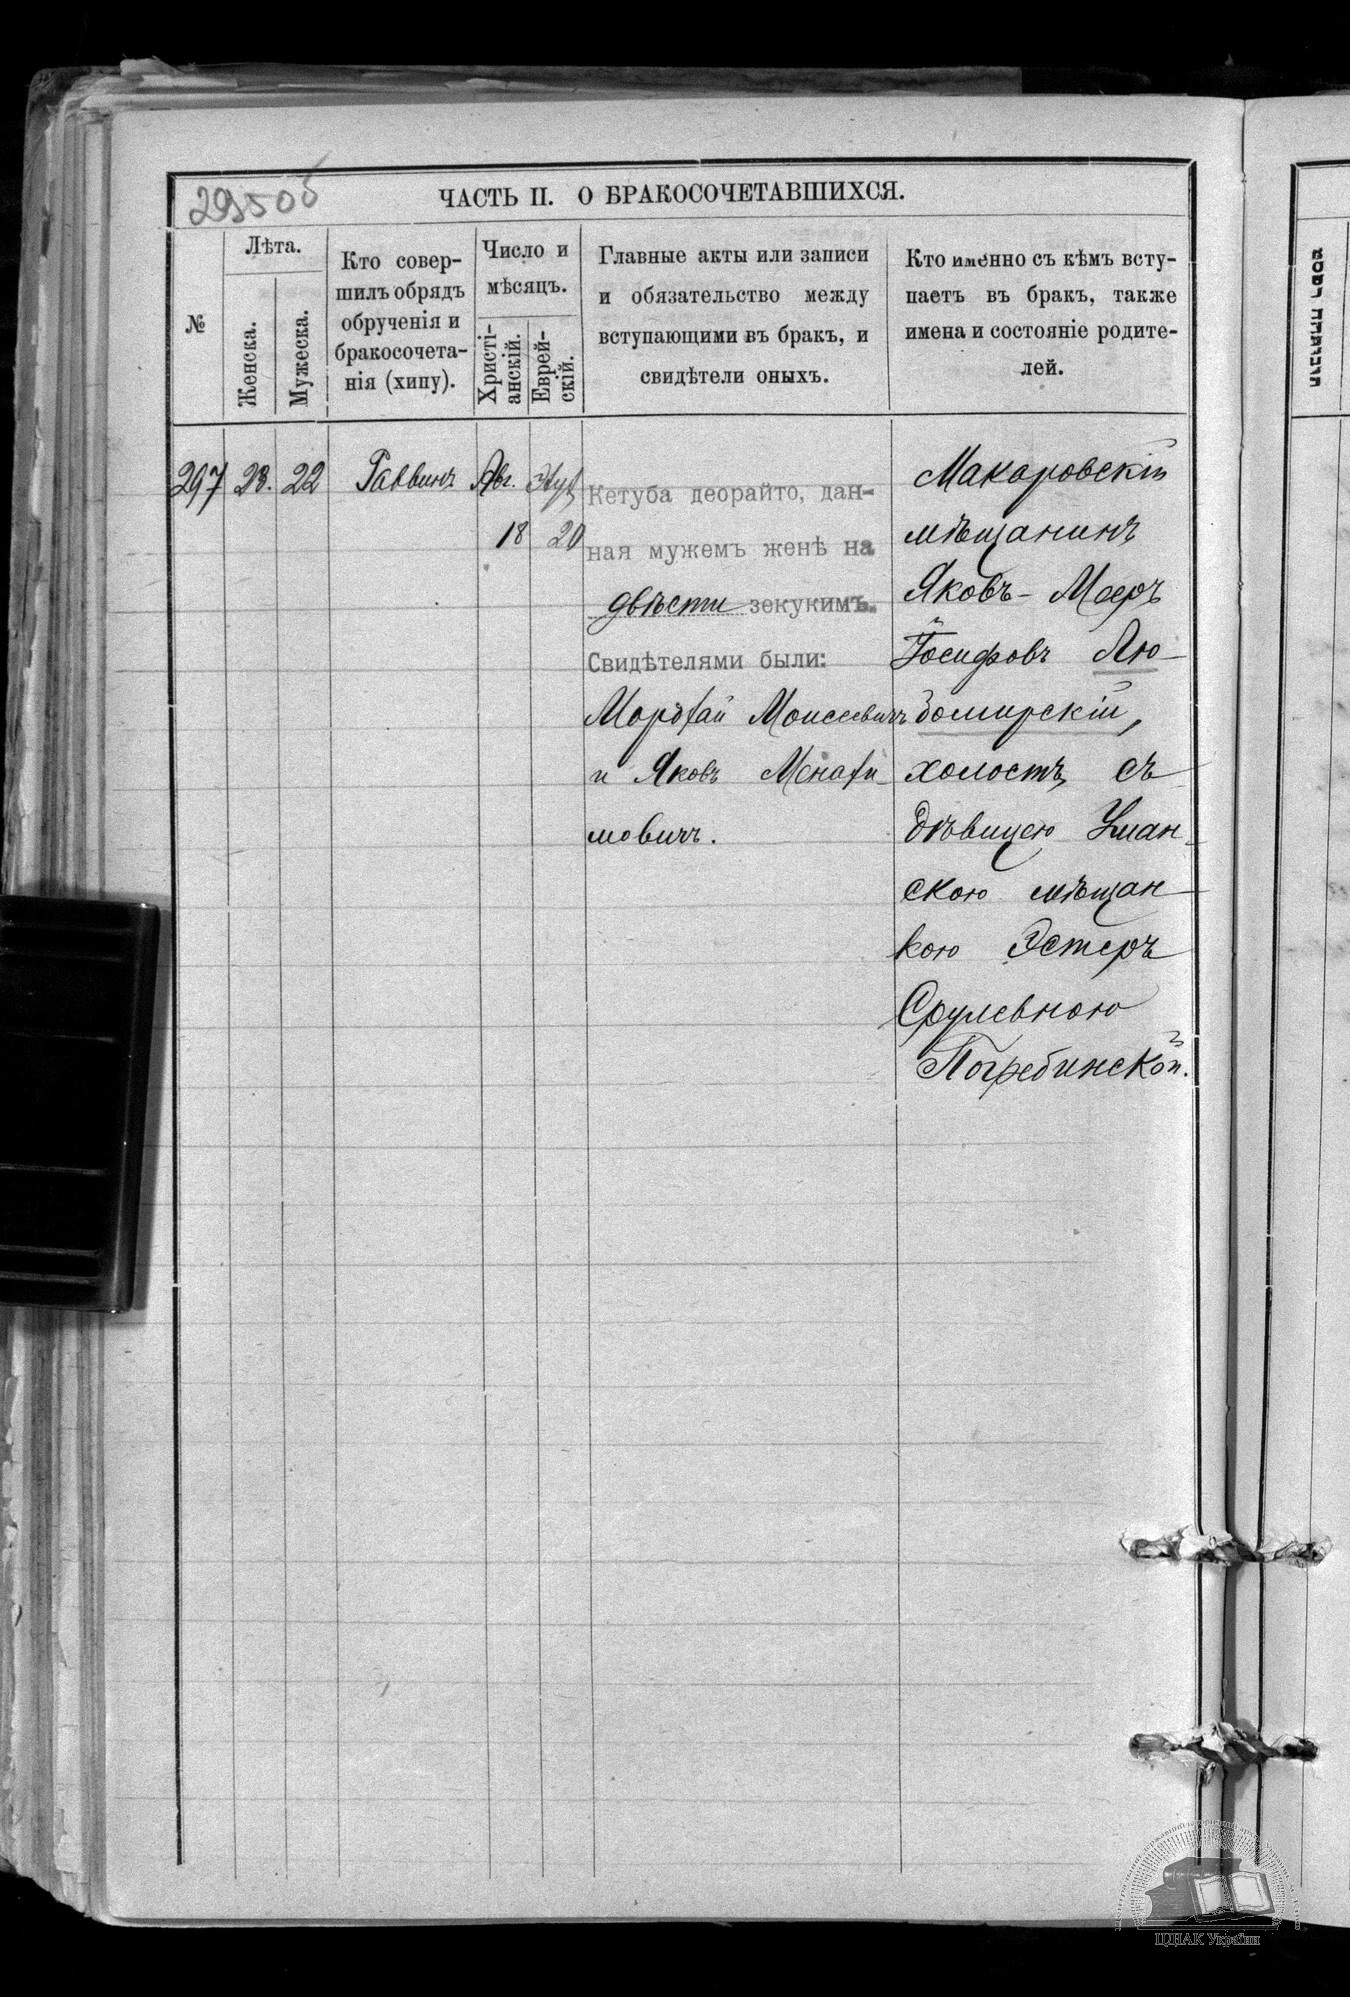 295об
ЧАСТЬ II. О БРАКОСОЧЕТАВШИХСЯ.
№
Лѣта.
Женска.
Мужеска.
Кто совер-
шилъ обрядъ
обрученія и
бракосочета-
нія (хипу).
Число и
мѣсяцъ.
Христі-
анскій.
Еврей-
скій.
Главные акты или записи
и обязательство между
вступающими въ бракъ, и
свидѣтели оныхъ.
Кто именно съ кѣмъ всту-
паетъ въ бракъ, также
имена и состояніе родите-
лей.
297
23.
22
Раввинъ
Авг.
18
20
Кетуба деорайто, дан-
ная мужемъ женѣ на
двѣсти зекукимъ.
Свидѣтелями были:
Мордхай Моисеевичъ
и Яковъ Менахи-
мовичъ.
Макаровскій
мѣщанинъ
Яковъ-Мееръ
Іосифовъ Лю-
бомирскій,
холостъ, съ
дѣвицею Уман-
скою мѣщан-
кою Эстеръ
Срулевною
Погребинской.
ЦДІАК України